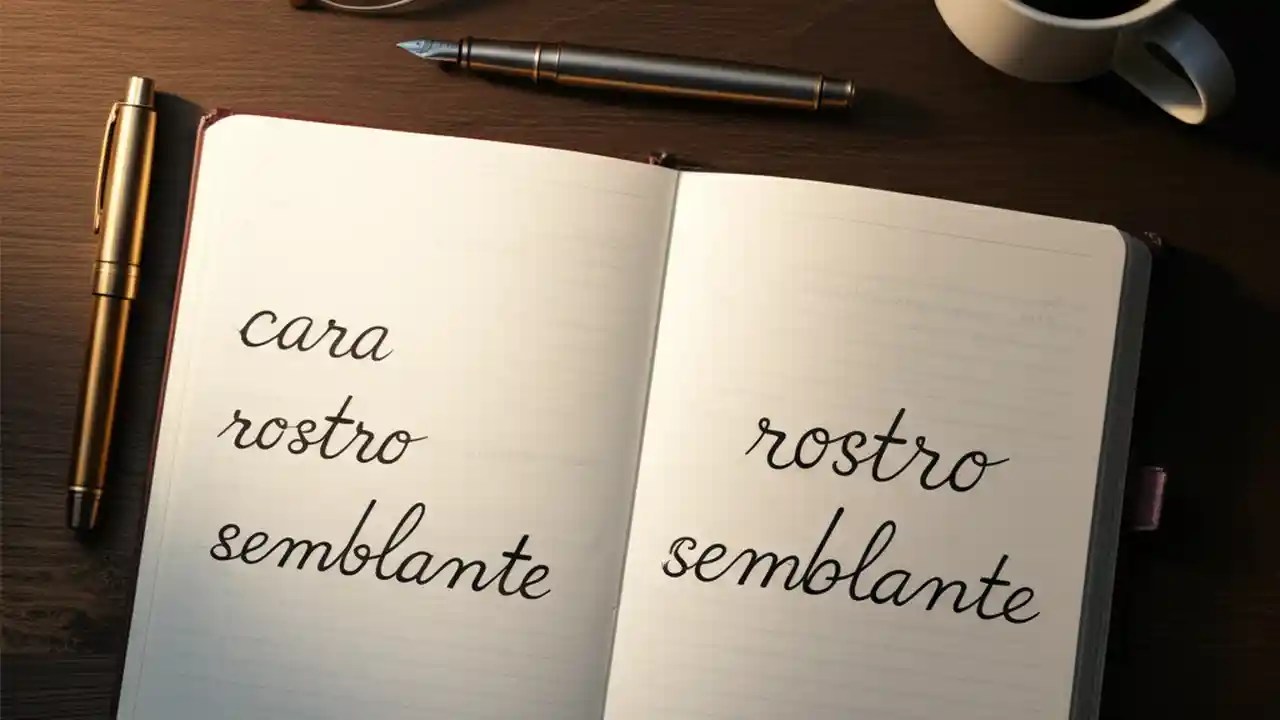 cara
rostro
semblante
rostro
semblante